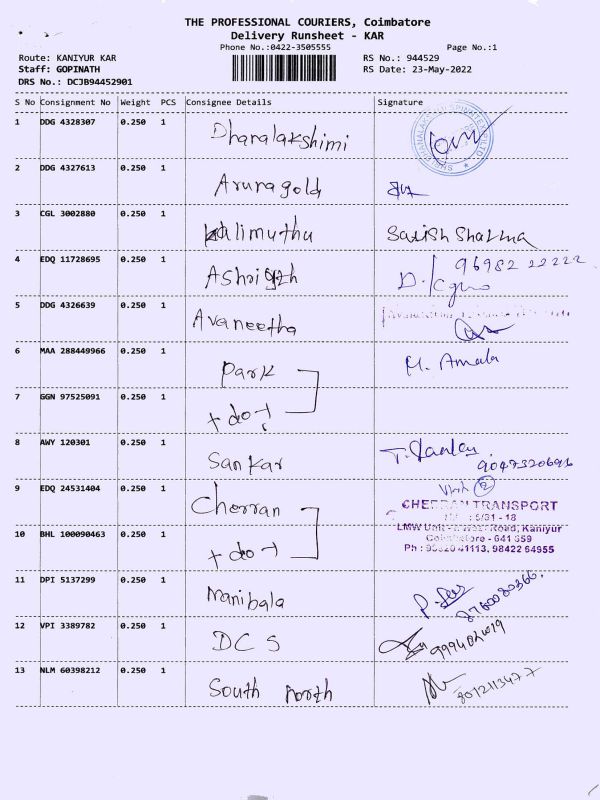 THE PROFESSIONAL COURIERS, Coimbatore
Delivery Runsheet - KAR
Phone No.:0422-3505555 Page No.:1
Route: KANIYUR KAR RS No.: 944529
Staff: GOPINATH RS Date: 23-May-2022
DRS No.: DCJB94452901
S No Consignment No Weight PCS Consignee Details Signature
1 DDG 4328307 0.250 1 Dhanalakshimi
2 DDG 4327613 0.250 1 Arunagold
3 CGL 3002880 0.250 1 Kalimuthu Satish Sharma
4 EDQ 11728695 0.250 1 96982 22222
5 DDG 4326639 0.250 1 Avaneetha
6 MAA 288449966 0.250 1 Park M. Amala
7 GGN 97525091 0.250 1 + do +
8 AWY 120301 0.250 1 Sankar
9 EDQ 24531404 0.250 1 Cherran
CHERRAN TRANSPORT
10 BHL 100090463 0.250 1 + do +
LMW Unit Road, Kaniyur
Coimbatore - 641 659
Ph : 98422 64955
11 DPI 5137299 0.250 1 Manibala
12 VPI 3389782 0.250 1 DCS
13 NLM 60398212 0.250 1 South North